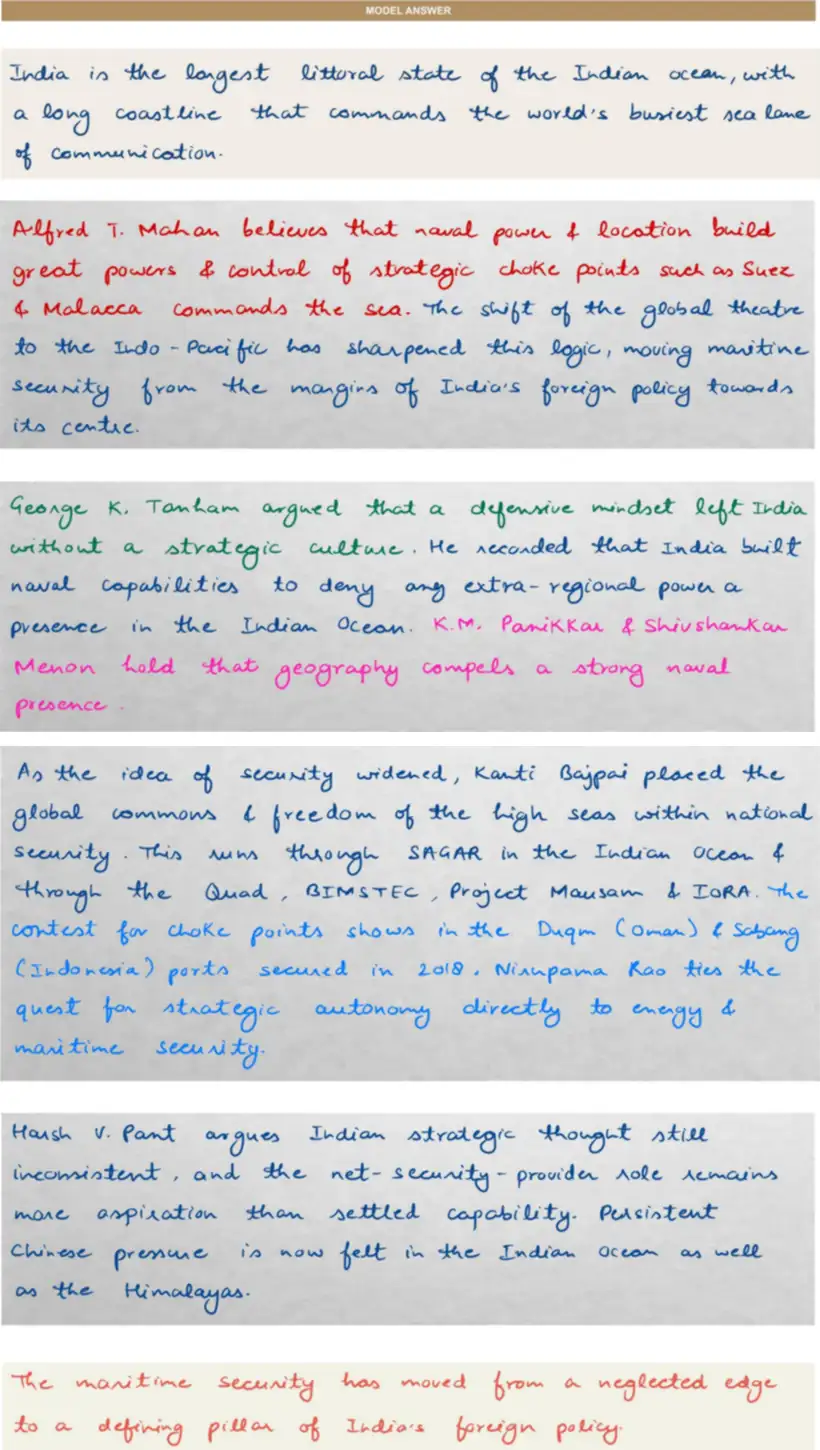 MODEL ANSWER
India is the largest littoral state of the Indian ocean, with
a long coastline that commands the world's busiest sea lane
of communication.
Alfred T. Mahan believes that naval power & location build
great powers & control of strategic choke points such as Suez
& Malacca commands the sea. The shift of the global theatre
to the Indo-Pacific has sharpened this logic, moving maritime
security from the margins of India's foreign policy towards
its centre.
George K. Tanham argued that a defensive mindset left India
without a strategic culture. He recorded that India built
naval capabilities to deny any extra-regional power a
presence in the Indian Ocean. K.M. Panikkar & Shivshankar
Menon hold that geography compels a strong naval
presence.
As the idea of security widened, Kanti Bajpai placed the
global commons & freedom of the high seas within national
security. This runs through SAGAR in the Indian Ocean &
through the Quad, BIMSTEC, Project Mausam & IORA. The
contest for choke points shows in the Duqm (Oman) & Sabang
(Indonesia) ports secured in 2018. Nirupama Rao ties the
quest for strategic autonomy directly to energy &
maritime security.
Harsh V. Pant argues Indian strategic thought still
inconsistent, and the net-security-provider role remains
more aspiration than settled capability. Persistent
Chinese pressure is now felt in the Indian Ocean as well
as the Himalayas.
The maritime security has moved from a neglected edge
to a defining pillar of India's foreign policy.